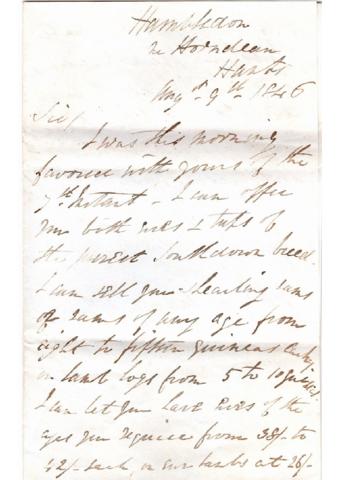 Hambledon
nr Horndean
Hants
Augst 9th 1846
Sir/
I was this morning
favored with yours of the
7th Instant - I can offer
you both ewes & tups of
the purest Southdown breed.
I can sell you Shearling rams
or rams of any age from
eight to fifteen guineas each,
or lamb from 5 to 10 guineas.
I can let you have ewes of the
ages you require from 38/- to
42/- each, or ewe lambs at 26/-